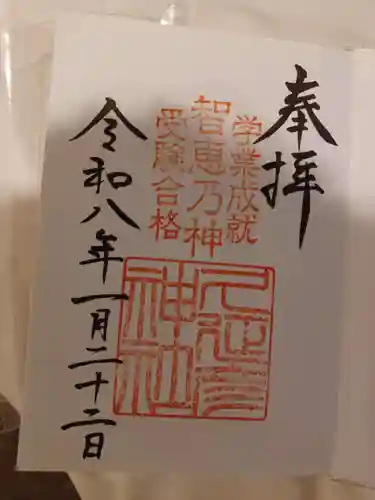 奉拝
学業成就
智恵乃神
受験合格
神社
令和八年一月二十二日